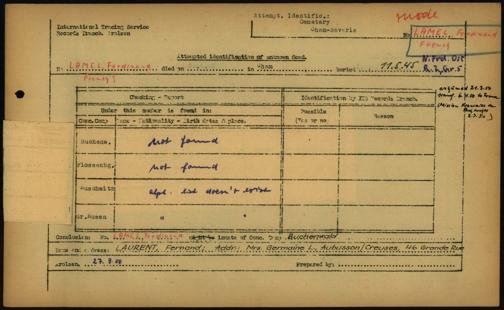 Attempt. Identific.:
Cemetery
Cham-Bavaria
International Tracing Service
Records Branch. Arolsen
No LAMEL Ferdinand
Attempted identification of unknown dead.
No LAMEL Ferdinand died on in Cham buried 11.5.45
Checking - Report
Identification by ITS Records Branch.
Under this number is found in:
Possible
(Yes or no)
Reason
Conc.Camp Name - Nationality - Birth dates & place.
Buchenw. not found
Flossenbg. not found
Auschwitz alph. list doesn't exist
Gr.Rosen "
Conclusion No. inmate of Conc. Camp Buchenwald
Name and Address: LAURENT, Fernand, Addr. Mrs. Germaine L. Aubusson/Creuses, 46 Grande Rue
Arolsen, 27. 9. 50 Prepared by: